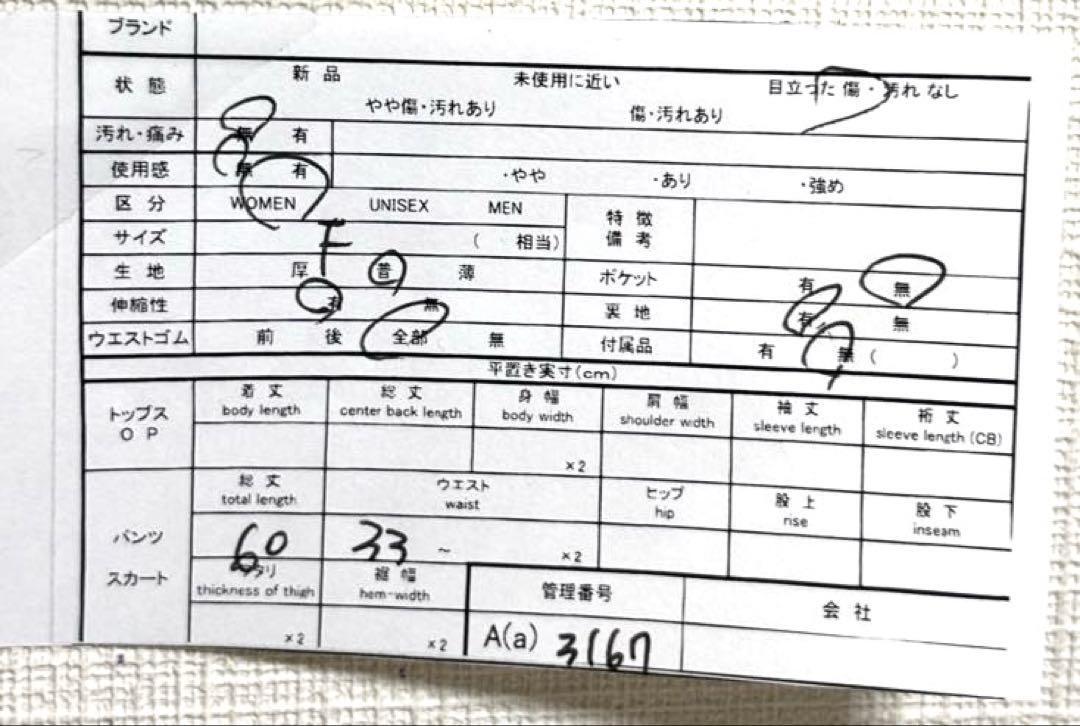 ブランド
状態 新品 未使用に近い 目立った傷・汚れなし
やや傷・汚れあり 傷・汚れあり
汚れ・痛み 無 有
使用感 無 有 ・やや ・あり ・強め
区分 WOMEN UNISEX MEN 特徴備考
サイズ F ( 相当)
生地 厚 普 薄 ポケット 有 無
伸縮性 有 無 裏地 有 無
ウエストゴム 前 後 全部 無 付属品 有 無 ( )
平置き実寸(cm)
トップス OP 着丈 総丈 身幅 肩幅 袖丈 裄丈
body length center back length body width shoulder width sleeve length sleeve length (CB)
×2
総丈 ウエスト ヒップ 股上 股下
total length waist hip rise inseam
パンツ 60 33 ~ ×2
スカート ワタリ 裾幅 管理番号 会社
thickness of thigh hem-width
×2 ×2 A(a) 3167